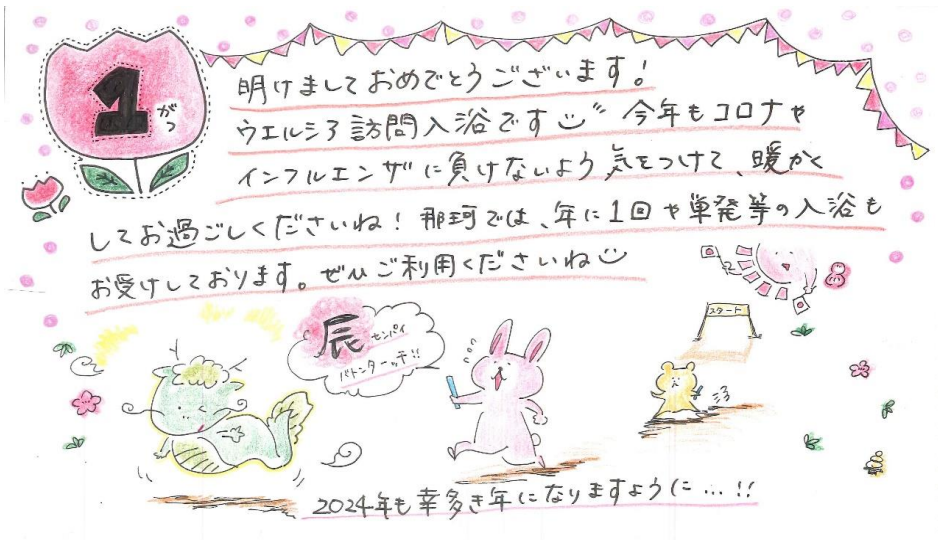 1がつ
明けましておめでとうございます!
ウエルシア訪問入浴です 今年もコロナや
インフルエンザに負けないよう気をつけて、暖かく
してお過ごしくださいね!那珂では、年に1回や単発等の入浴も
お受けしております。ぜひご利用くださいね
スタート
辰センパイ
バトンターッチ!!
2024年も幸多き年になりますように…!!